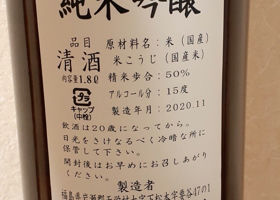 純米吟醸
品目
清酒
内容量1.8ℓ
原材料名:米(国産)
米こうじ(国産米)
精米歩合:50%
アルコール分:15度
製造年月:2020.11
キャップ
(中栓)
飲酒は20歳になってから。
日光をさけなるべく冷暗な所に
保管して下さい。
開封後はお早めにお召しあがり
ください。
製造者
福島県岩瀬郡天栄村大字下松本字要谷47の1